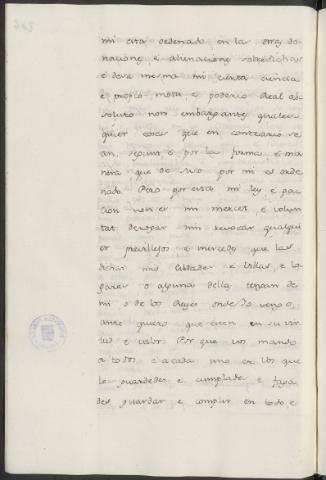 mi esta ordenado, en las otras do-
naciones, é alienaciones sobredichas
é desa mesma mi cierta ciencia
é propio motu, é poderio Real ab-
soluto non embargante qualesquier
quier cosas que en contrario se-
an, segunt é por la forma, é ma-
nera que de suso por mi es orde-
nado. Pero por esta mi ley é pac-
cion non es mi merced, é volun-
tat derogar nin revocar qualqui-
er previllejos é mercedes que las
dichas mis Cibdades é Villas, é lo-
gares o alguna dellas tengan de
mi o de los Reyes onde Yo vengo o,
ante quiero que esten en su vir-
tud é valor. Por que vos mando
a todos, é a cada uno de vos que
lo guardedes é cumplades é faga-
des guardar é complir en todo, é